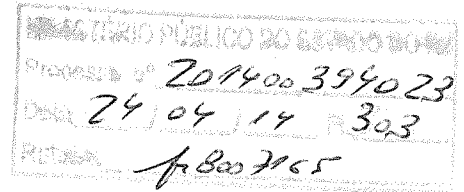 MINISTÉRIO PÚBLICO DO ESTADO DO
Processo nº 201400394023
Data 24 / 04 / 14 Fl. 303
Rubrica